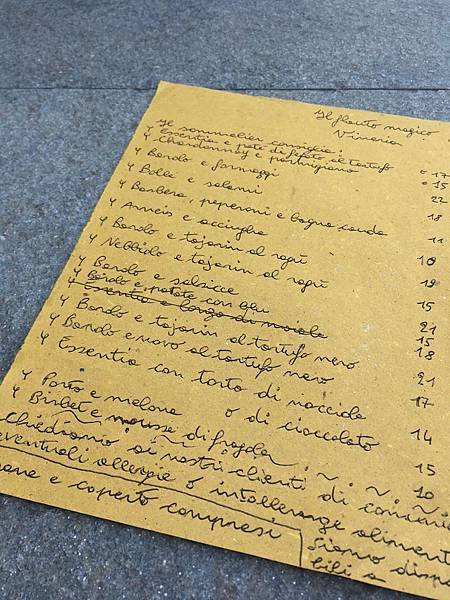 Il flauto magico
Vineria
Il sommelier consiglia:
4 Essentia e patè di fegato al tartufo 17
4 Chardonnay e parmigiano 15
4 Bordo e formaggi 22
4 Bolle e salami 18
4 Barbera, peperoni e bagna cauda 11
4 Arneis e acciughe 18
4 Bordo e tajarin al ragù 19
4 Nebbido e tajarin al ragù
4 Bordo e salsicce 15
4 Bordo e patate con blu 21
4 Essentia e lonza di maiale 15
4 Bordo e tajarin al tartufo nero 18
4 Bordo e uovo al tartufo nero 21
4 Essentia con torta di nocciole 17
o di cioccolato
4 Porto e melone 14
4 Birbet e mousse di fragola 15
Chiediamo ai nostri clienti di comunic 10
eventuali allergie o intolleranze aliment
pane e coperto compresi
Siamo dispo
bili a